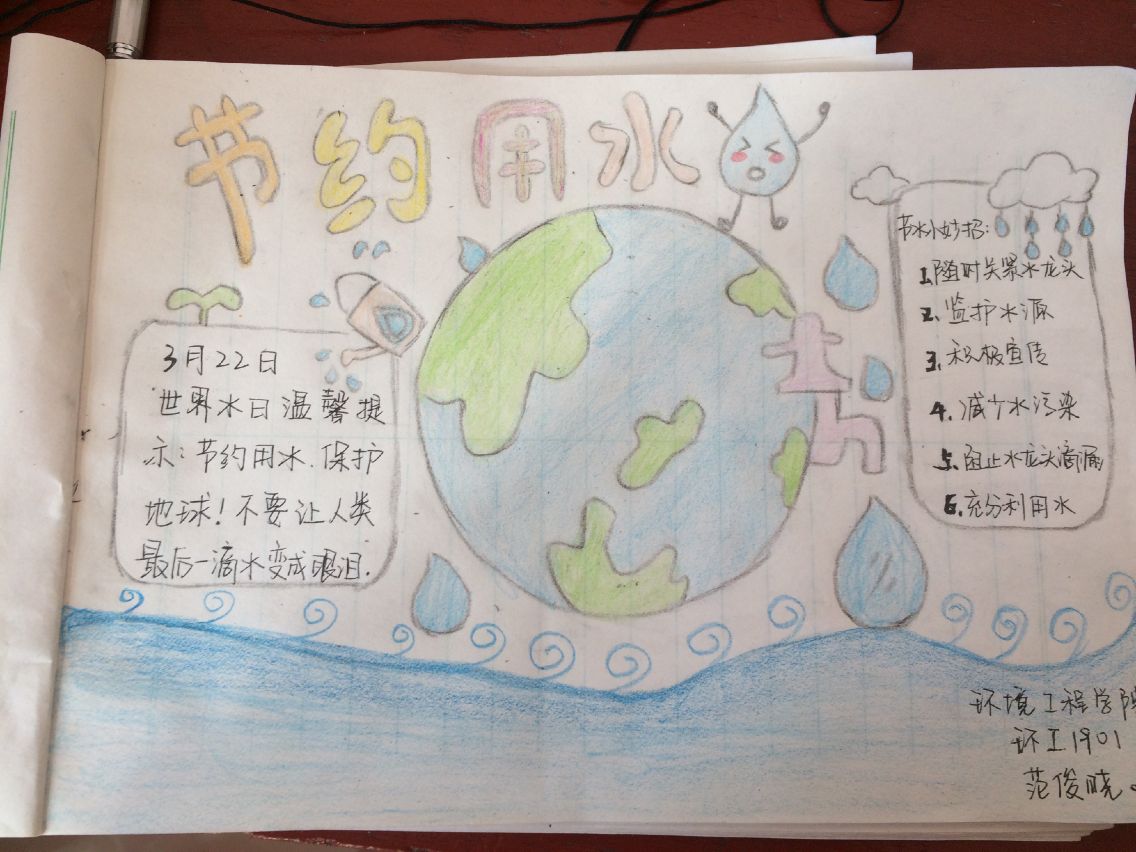 节约用水
3月22日
世界水日温馨提
示：节约用水.保护
地球！不要让人类
最后一滴水变成眼泪.
节水小妙招：
1.随时关紧水龙头
2.监护水源
3.积极宣传
4.减少水污染
5.阻止水龙头滴漏
6.充分利用水
环境工程学院
环工1901
范俊晓